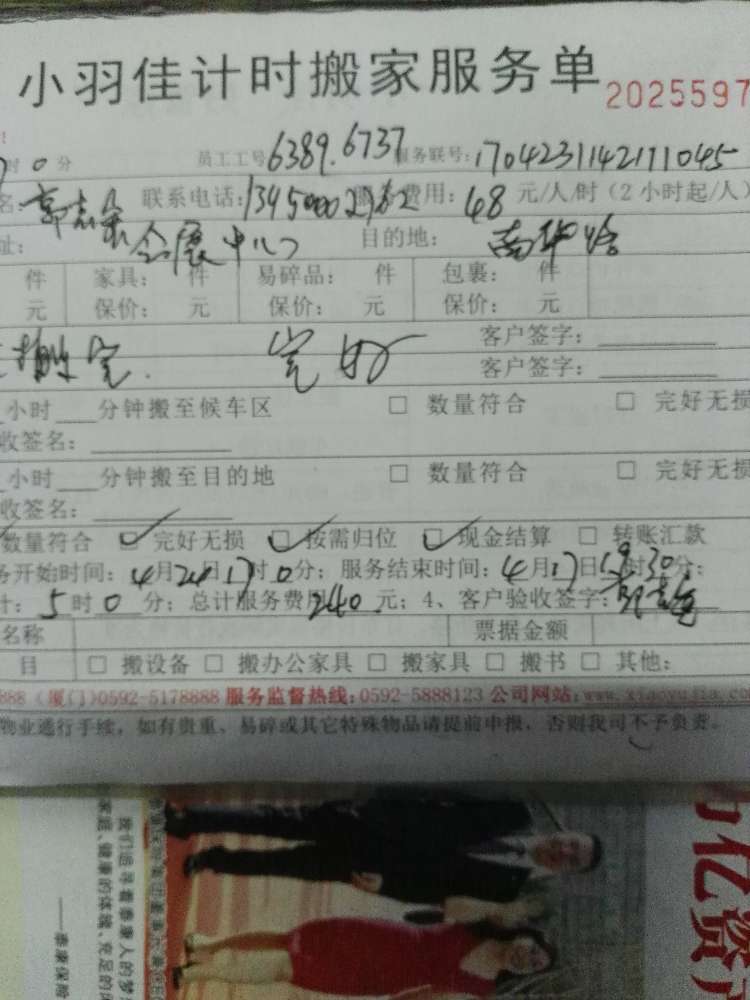 小羽佳计时搬家服务单
2025597
时 0 分 员工工号 6389.6737 服务联号: 170423114211045
名: 联系电话: 服务费用: 48 元/人/时(2小时起/人)
址: 会展中心 目的地:
件 家具: 件 易碎品: 件 包裹: 件
元 保价: 元 保价: 元 保价: 元
客户签字:
完好
客户签字:
小时 分钟搬至候车区 □ 数量符合 □ 完好无损
收签名:
小时 分钟搬至目的地 □ 数量符合 □ 完好无损
收签名:
数量符合 ☑ 完好无损 ☑ 按需归位 ☑ 现金结算 □ 转账汇款
务开始时间: 4月24日17时0分; 服务结束时间: 4月17日19时30分;
计: 5时0分; 总计服务费用 240 元; 4、客户验收签字:
名称 票据金额
目 □ 搬设备 □ 搬办公家具 □ 搬家具 □ 搬书 □ 其他:
888 (厦门)0592-5178888 服务监督热线:0592-5888123 公司网站:www.xiaoyujia.co
物业通行手续, 如有贵重、易碎或其它特殊物品请提前申报, 否则我司不予负责。
亿资
我们追寻着泰康人的梦
家庭、健康的体魄、充足的
——泰康保险